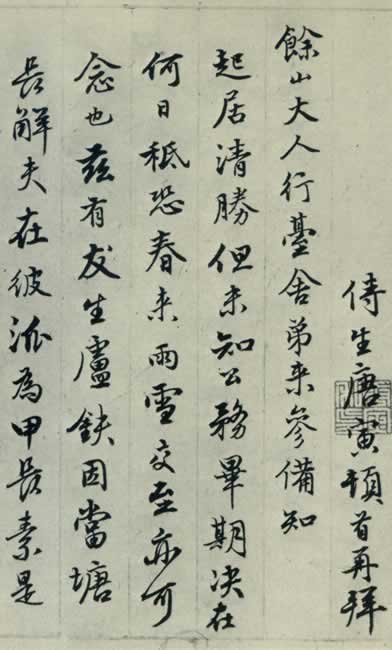 侍生唐寅頓首再拜
餘山大人行臺舍弟來參備知
起居清勝但未知公務畢期決在
何日祗恐春來雨雪交至亦可
念也茲有友生盧鈇因當塘
長解夫在彼派為甲長素是